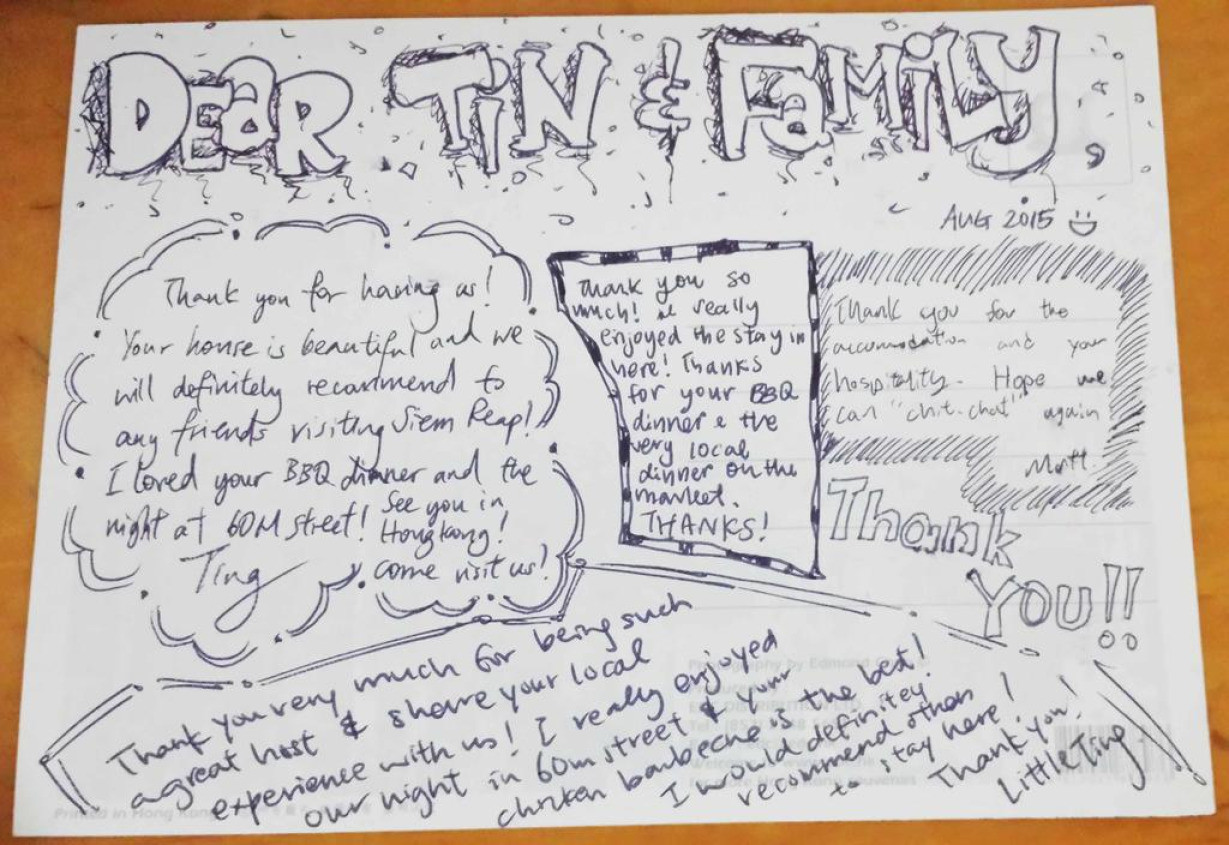 DEAR TiN & FAMiLY
AUG 2015
Thank you for having us!
Your house is beautiful and we
will definitely recommend to
any friends visiting Siem Reap!
I loved your BBQ dinner and the
night at 60M street! See you in
Hongkong!
Ting come visit us!
Thank you so
much! We really
enjoyed the stay in
here! Thanks
for your BBQ
dinner & the
very local
dinner on the
market.
THANKS!
Thank you for the
accommodation and your
hospitality. Hope we
can "chit-chat" again
Matt.
Thank
YOU!!
Thank you very much for being such
a great host & share your local
experience with us! I really enjoyed
our night in 60m street & your
chicken barbecue is the best!
I would definitey
recommend other
to stay here!
Thank you!
Little Ting
Photography by Edmond
Printed in Hong Kong